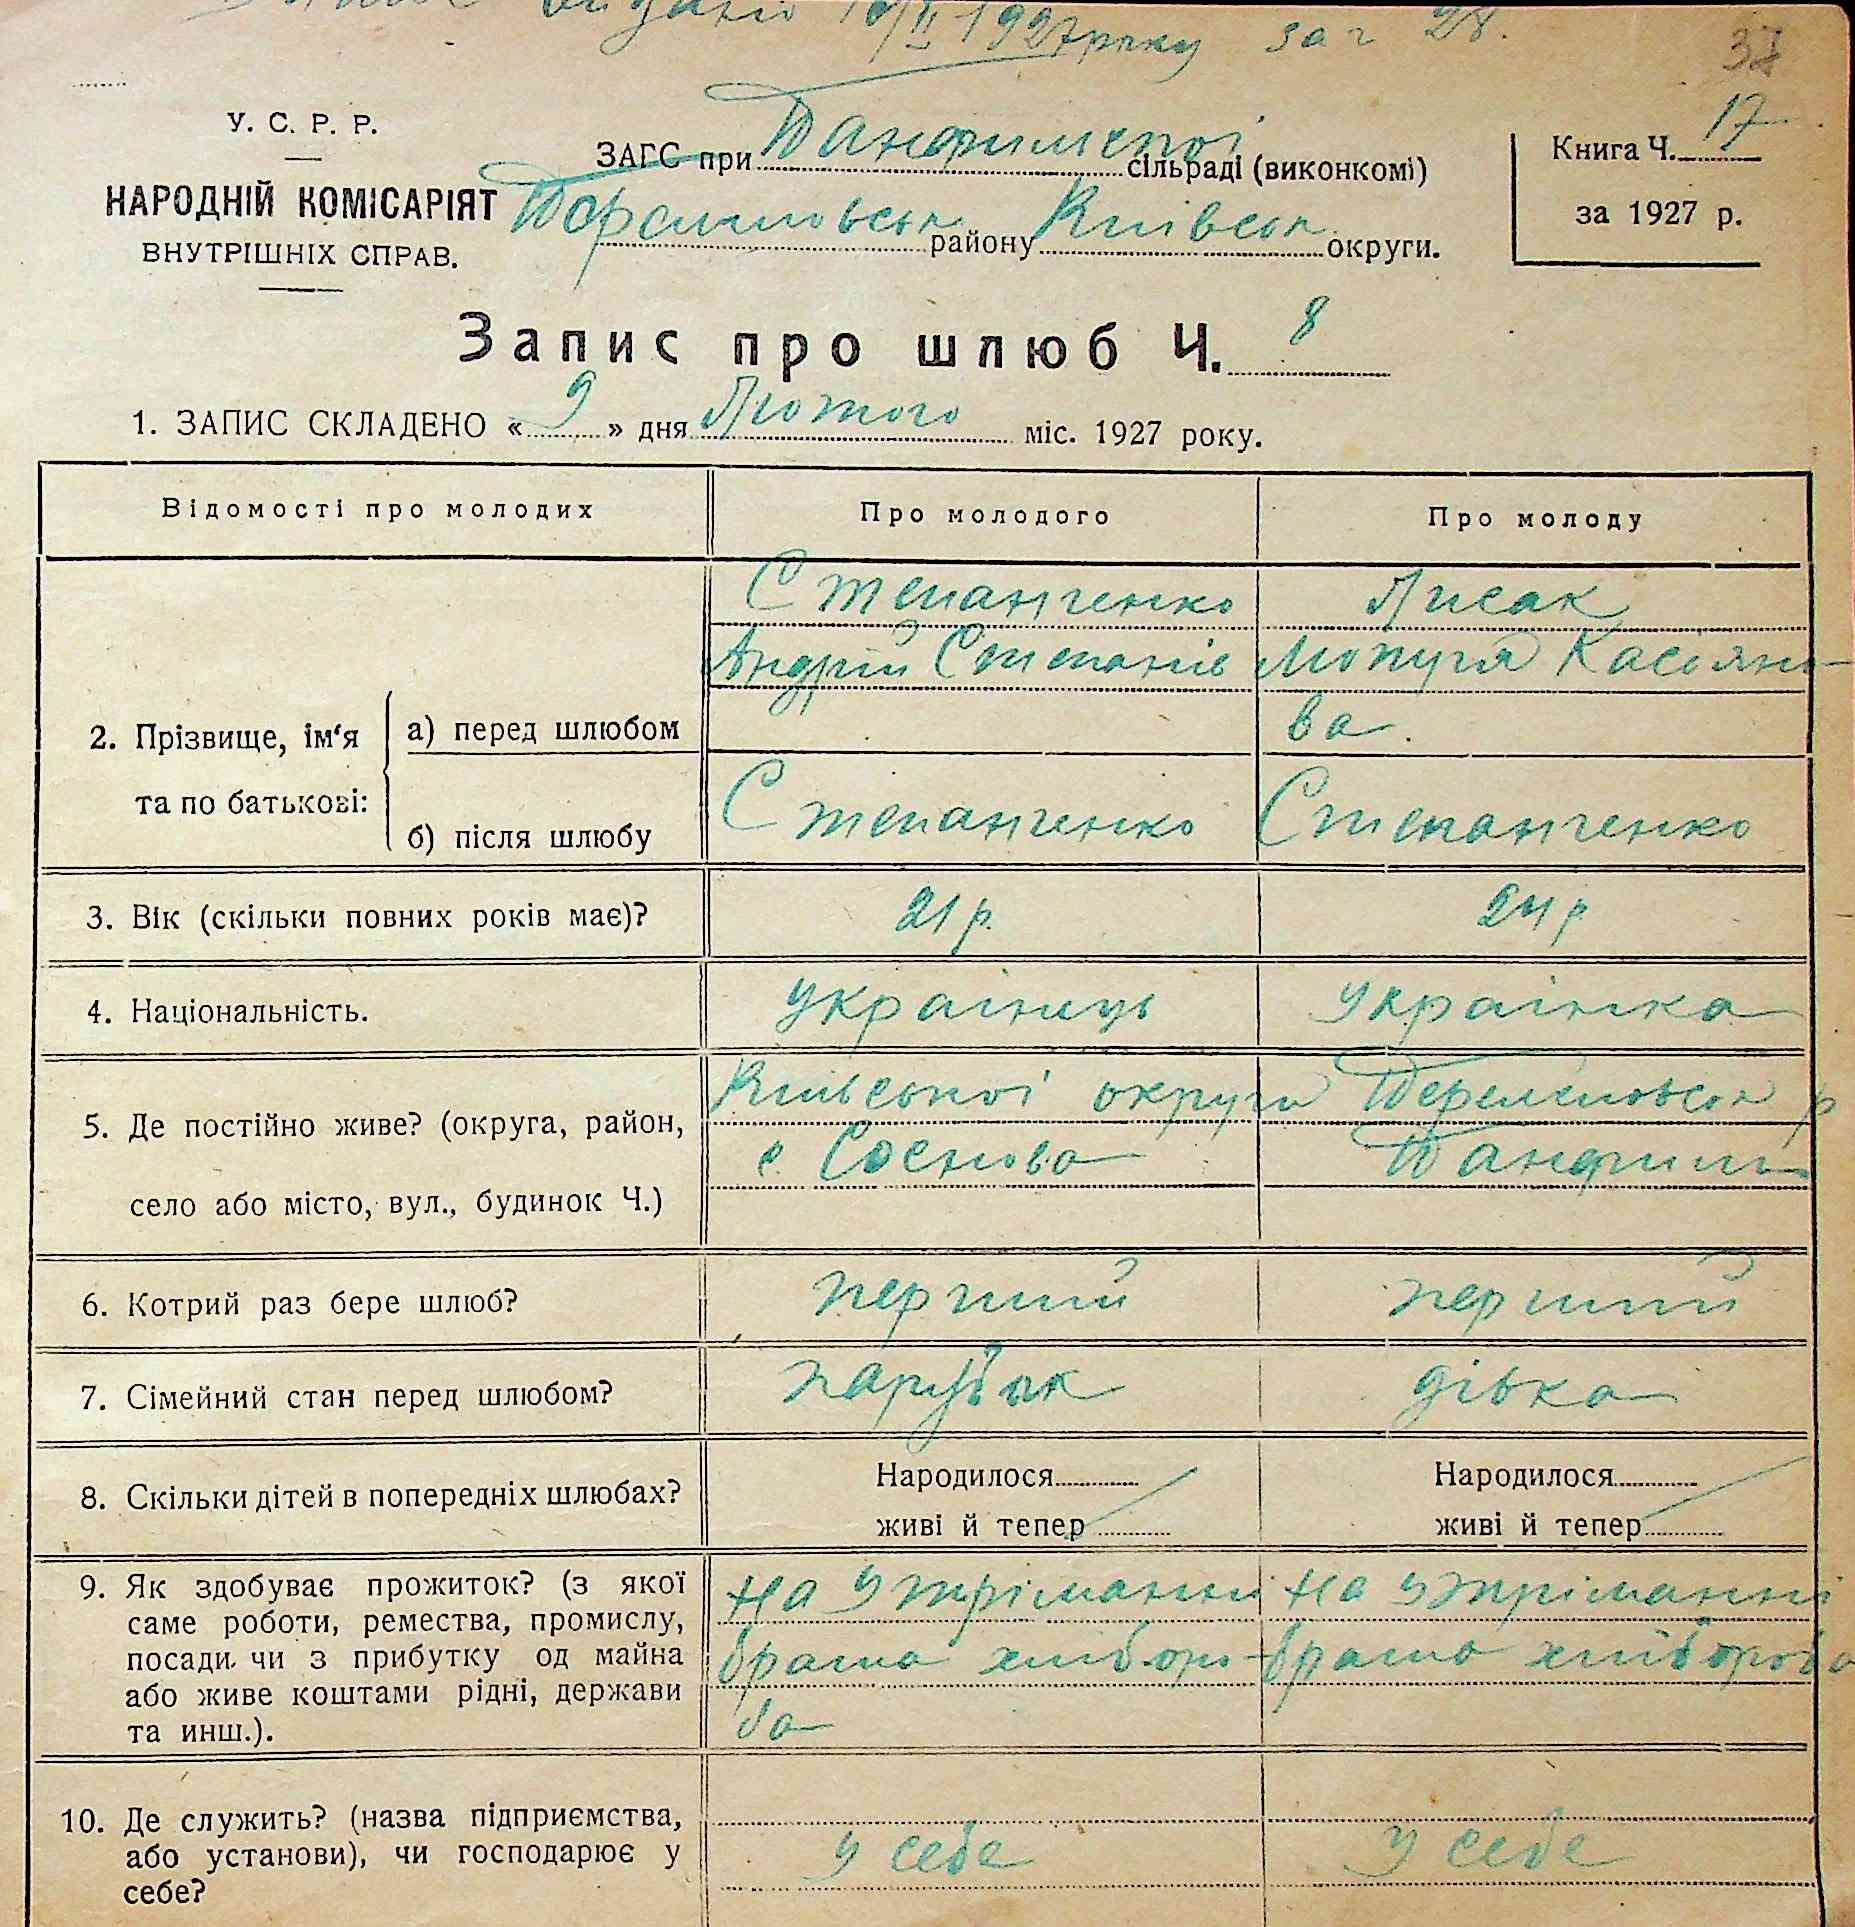 видано 10/II 1927 року за ч 28.
37
У. С. Р. Р.
НАРОДНІЙ КОМІСАРІЯТ
ВНУТРІШНІХ СПРАВ.
ЗАГС при сільраді (виконкомі)
району Київськ округи.
Книга Ч. 17
за 1927 р.
Запис про шлюб Ч. 8
1. ЗАПИС СКЛАДЕНО « 9 » дня Лютого міс. 1927 року.
Відомості про молодих
Про молодого
Про молоду
2. Прізвище, ім'я та по батькові:
а) перед шлюбом
Степанченко
Андрій Степанів
Лисак
Касіяно-
ва.
б) після шлюбу
Степанченко
Степанченко
3. Вік (скільки повних років має)?
21 р.
24 р
4. Національність.
українець
українка
5. Де постійно живе? (округа, район,
село або місто, вул., будинок Ч.)
Київської округи
с. Соснова
р
6. Котрий раз бере шлюб?
перший
перший
7. Сімейний стан перед шлюбом?
парубок
дівка
8. Скільки дітей в попередніх шлюбах?
Народилося
живі й тепер
Народилося
живі й тепер
9. Як здобуває прожиток? (з якої
саме роботи, ремества, промислу,
посади чи з прибутку од майна
або живе коштами рідні, держави
та инш.).
на утріманні
брата хліборо-
ба
на утріманні
брата хлібороба
10. Де служить? (назва підприємства,
або установи), чи господарює у
себе?
у себе
у себе